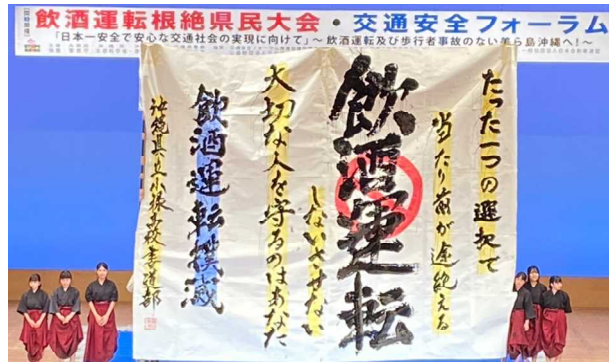 飲酒運転根絶県民大会・交通安全フォーラム
「日本一安全で安心な交通社会の実現に向けて」～飲酒運転及び歩行者事故のない美ら島沖縄へ!～
たった一つの選択で
当たり前が途絶える
飲酒運転
しないさせない
大切な人を守るのはあなた
飲酒運転撲滅
沖縄県立小禄高校書道部